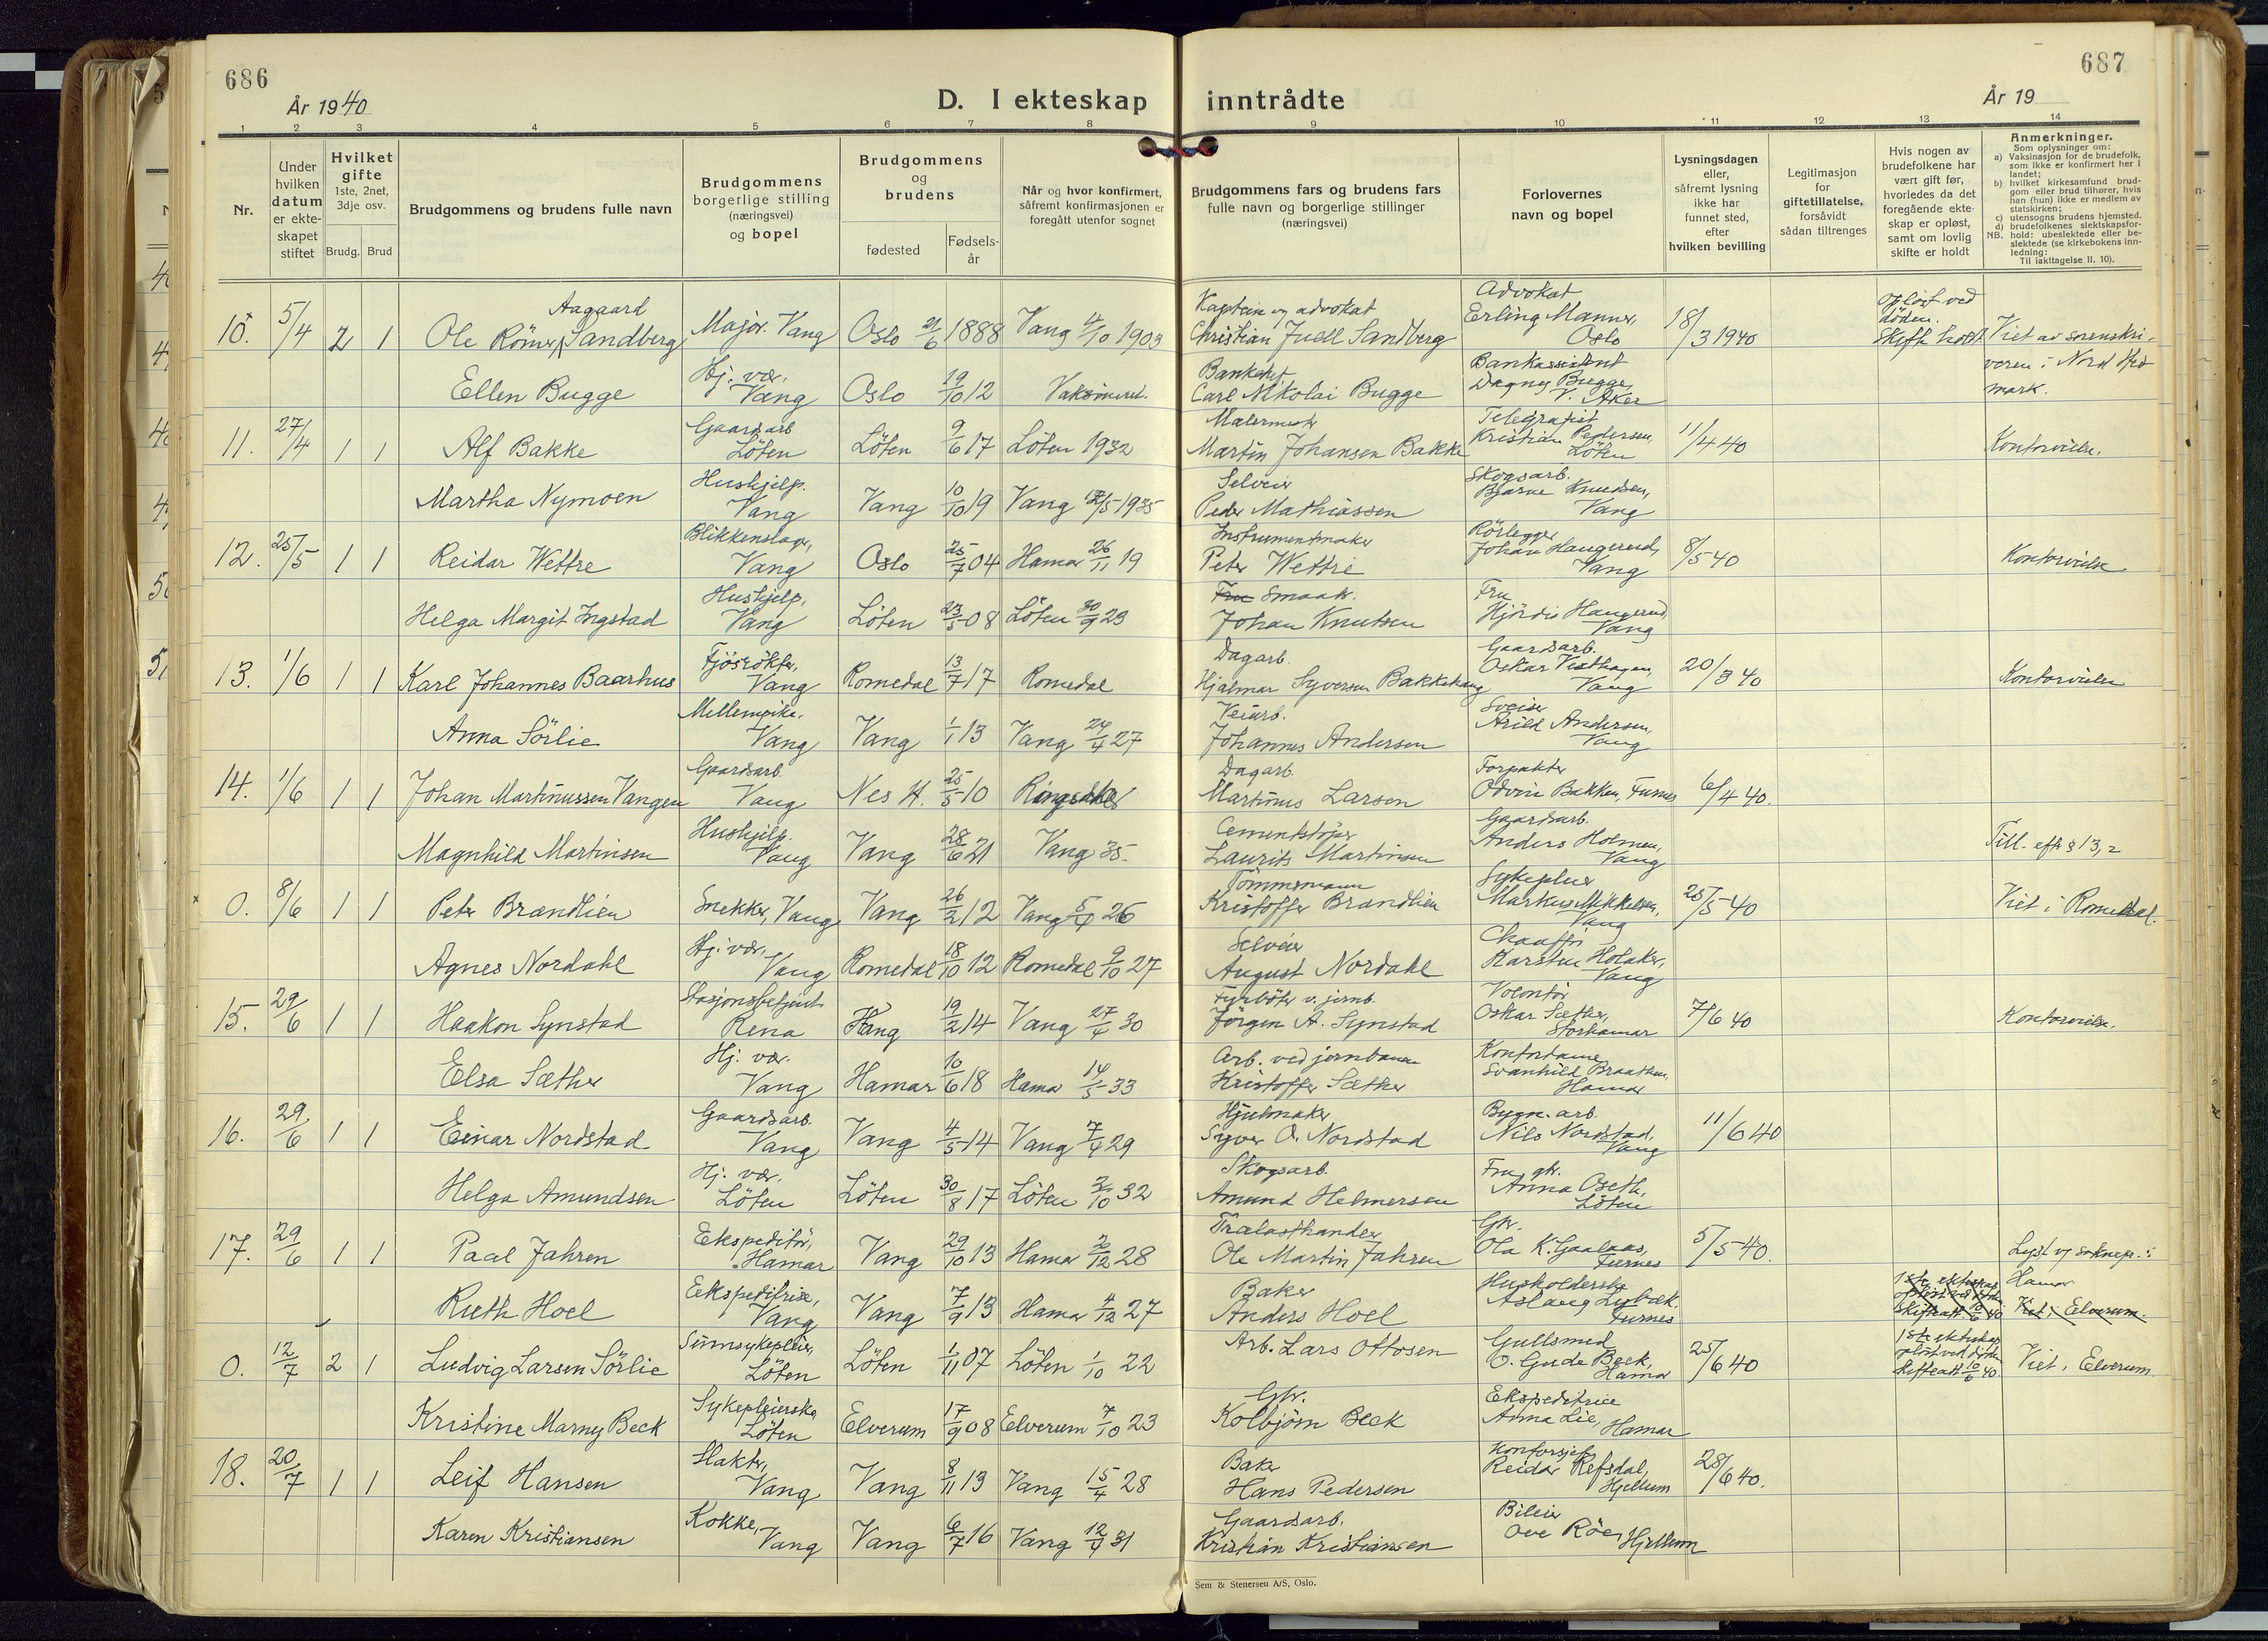 686
687
År 1940
D. I ekteskap inntrådte
År 19
1 2 3 4 5 6 7 8 9 10 11 12 13 14
Nr.
Under hvilken datum er ekteskapet stiftet
Hvilket gifte 1ste, 2net, 3dje osv.
Brudg. Brud
Brudgommens og brudens fulle navn
Brudgommens borgerlige stilling (næringsvei) og bopel
Brudgommens og brudens
fødested
Fødsels-år
Når og hvor konfirmert, såfremt konfirmasjonen er foregått utenfor sognet
Brudgommens fars og brudens fars fulle navn og borgerlige stillinger (næringsvei)
Forlovernes navn og bopel
Lysningsdagen eller, såfremt lysning ikke har funnet sted, efter hvilken bevilling
Legitimasjon for giftetillatelse, forsåvidt sådan tiltrenges
Hvis nogen av brudefolkene har vært gift før, hvorledes da det foregående ekteskap er opløst, samt om lovlig skifte er holdt
Anmerkninger.
Som oplysninger om:
a) Vaksinasjon for de brudefolk, som ikke er konfirmert her i landet;
b) hvilket kirkesamfund brudgom eller brud tilhører, hvis han (hun) ikke er medlem av statskirken;
c) utensogns brudens hjemsted.
d) brudefolkenes slektskapsforhold: ubeslektede eller beslektede (se kirkebokens innledning:
NB.
Til iakttagelse II. 10).
10. 5/4 2 1 Ole Römer Aagaard Sandberg Major. Vang Oslo 21/6 1888 Vang 4/10 1903 Kaptein og advokat Christian Juell Sandberg Advokat Erling Manner, Oslo 18/3 1940 opløst ved döden. Skifte holdt. Viet av sorenskriveren i Nord Hedmark.
Ellen Bugge Hj. vær. Vang Oslo 19/10 12 Vaksinert. Banksjef Carl Nikolai Bugge Bankassistent Dagny Bugge, V. Aker
11. 27/4 1 1 Alf Bakke Gaardsarb Löten Löten 9/6 17 Löten 1932 Malermester Martin Johansen Bakke Telegrafist Kristian Pedersen, Löten 11/4 40 Kontorvielse.
Martha Nymoen Hushjelp. Vang Vang 10/10 19 Vang 12/5 1935 Selveier Peder Mathiassen Skogsarb. Bjarne Knudsen, Vang
12. 25/5 1 1 Reidar Wettre Blikkenslager, Vang Oslo 25/7 04 Hamar 26/11 19 Instrumentmaker Peter Wettre Rörlegger Johan Haugerud, Vang 8/5 40 Kontorvielse
Helga Margit Ingstad Hushjelp, Vang Löten 23/5 08 Löten 30/9 23 Smaabr. Johan Knutsen Fru Hjördis Haugerud, Vang
13. 1/6 1 1 Karl Johannes Baarhus Fjösrökter, Vang Romedal 13/7 17 Romedal Dagarb. Hjalmar Syversen Bakkehaug Gaardsarb. Oskar Vesthagen, Vang 20/3 40 Kontorvielse
Anna Sörlie Mellempike. Vang Vang 1/1 13 Vang 24/4 27 Veiarb. Johannes Andersen Sveiser Arild Andersen, Vang
14. 1/6 1 1 Johan Martinussen Vangen Gaardsarb. Vang Nes H. 25/5 10 Ringsaker Dagarb. Martinus Larsen Forpakter Odvin Bakken, Furnes 6/4 40.
Magnhild Martinsen Hushjelp. Vang Vang 28/6 21 Vang 35. Cementstöper Laurits Martinsen Gaardsarb. Anders Holmen, Vang Till. efter § 13, 2
0. 8/6 1 1 Peter Brændlien Snekker, Vang Vang 26/2 12 Vang 5/4 26 Tömmermann Kristoffer Brændlien Sykepleier Markus Mikkelsen, Vang 25/5 40 Viet i Romedal.
Agnes Nordahl Hj. vær. Vang Romedal 18/10 12 Romedal 9/10 27 Selveier August Nordahl Chauffør Karsten Holaker, Vang
15. 29/6 1 1 Haakon Synstad Stasjonsbetjent Rena Vang 19/2 14 Vang 27/4 30 Fyrböter v. jernb. Jörgen A. Synstad Volontör Oskar Sæther, Storhamar 7/6 40 Kontorvielse.
Elsa Sæther Hj. vær. Vang Hamar 10/6 18 Hamar 14/5 33 Arb. ved jernbanen Kristoffer Sæther Kontordame Svanhild Braathen, Hamar
16. 29/6 1 1 Einar Nordstad Gaardsarb. Vang Vang 4/5 14 Vang 7/4 29 Hjulmaker Syver O. Nordstad Bygn. arb. Nils Nordstad, Vang 11/6 40
Helga Amundsen Hj. vær. Löten Löten 30/8 17 Löten 2/10 32 Skogsarb. Amund Helmersen Fru gbr. Anna Oseth, Löten
17. 29/6 1 1 Paal Jahren Ekspeditör, Hamar Vang 29/10 13 Hamar 2/12 28 Trælasthandler Ole Martin Jahren Gbr. Ola K. Gaalaas, Furnes 5/5 40. Lyst av soknepr. i Hamar
Ruth Hoel Ekspeditrise, Vang Vang 7/9 13 Hamar 4/12 27 Baker Anders Hoel Husholderske Aslaug Lybæk. Furnes 1ste ekteskap opløst ved döden Skifteatt. 10/6 40 Viet i Elverum.
0. 12/7 2 1 Ludvig Larsen Sörlie Sinnsykepleier, Löten Löten 1/11 07 Löten 1/10 22 Arb. Lars Ottosen Gullsmed O. Gude Beck, Hamar 25/6 40 1ste ekteskap opløst ved döden Skifteatt. 10/6 40. Viet i Elverum.
Kristine Marny Beck Sykepleierske Löten Elverum 17/9 08 Elverum 7/10 23 Gbr. Kolbjörn Beck Ekspeditrice Anna Lie, Hamar
18. 20/7 1 1 Leif Hansen Slakter, Vang Vang 8/11 13 Vang 15/4 28 Baker Hans Pedersen Kontorsjef Reidar Refsdal, Hjellum 28/6 40.
Karen Kristiansen Kokke, Vang Vang 6/7 16 Vang 12/4 31 Gaardsarb. Kristian Kristiansen Bileier Ove Röe, Hjellum
Sem & Stenersen A/S, Oslo.